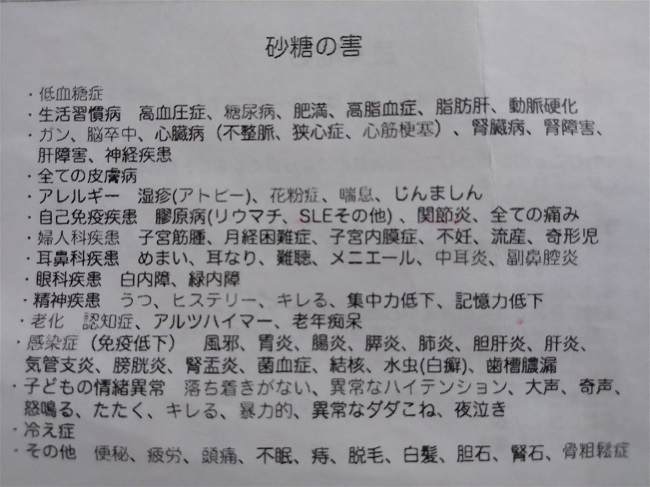 砂糖の害
・低血糖症
・生活習慣病　高血圧症、糖尿病、肥満、高脂血症、脂肪肝、動脈硬化
・ガン、脳卒中、心臓病（不整脈、狭心症、心筋梗塞）、腎臓病、腎障害、
肝障害、神経疾患
・全ての皮膚病
・アレルギー　湿疹(アトピー)、花粉症、喘息、じんましん
・自己免疫疾患　膠原病(リウマチ、SLEその他)、関節炎、全ての痛み
・婦人科疾患　子宮筋腫、月経困難症、子宮内膜症、不妊、流産、奇形児
・耳鼻科疾患　めまい、耳なり、難聴、メニエール、中耳炎、副鼻腔炎
・眼科疾患　白内障、緑内障
・精神疾患　うつ、ヒステリー、キレる、集中力低下、記憶力低下
・老化　認知症、アルツハイマー、老年痴呆
・感染症（免疫低下）　風邪、胃炎、腸炎、膵炎、肺炎、胆肝炎、肝炎、
気管支炎、膀胱炎、腎盂炎、菌血症、結核、水虫(白癬)、歯槽膿漏
・子どもの情緒異常　落ち着きがない、異常なハイテンション、大声、奇声、
怒鳴る、たたく、キレる、暴力的、異常なダダこね、夜泣き
・冷え症
・その他　便秘、疲労、頭痛、不眠、痔、脱毛、白髪、胆石、腎石、骨粗鬆症